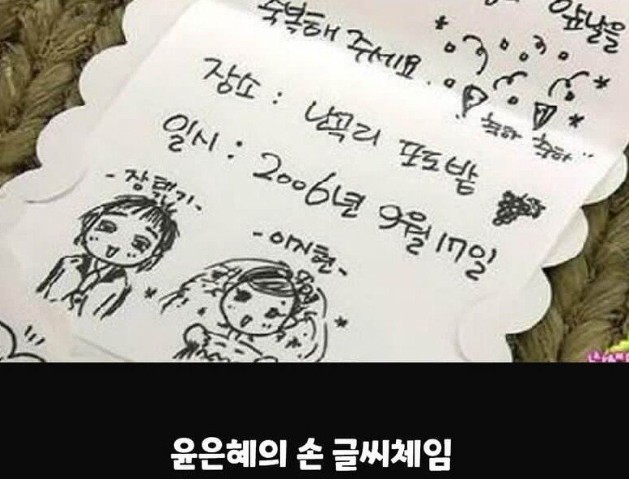 앞날을
축복해 주세요.
축하 축하
장소 : 난곡리 포도밭
일시 : 2006년 9월 17일
-장택기-
-이지현-
윤은혜의 손 글씨체임